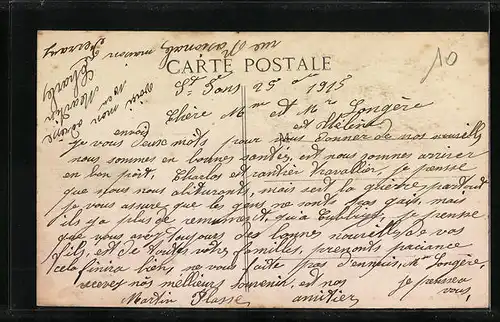 CARTE POSTALE
10
St Pons 25 8bre 1915
Chère Mme et Mr Longère
et Hélène
envoie
Je vous deux mots pour vous donner de nos nouvelles
nous sommes en bonnes santés, est nous sommes arriver
en bon port, Charlos est rantier travallier, je panse
que nous nous abituront, mais sert la guère partout
je vous assure que les gens ne sont pas gait, mais
ils ya plus de remument, qu'a, je pense
que vous avez toujours des bonnes nouvelles de vos
fils, est de toutes votre familles, prenonds paciance
cela finira biens, ne vous faite pas d'ennuis, Mme Longère,
recevez nos meilleurs souvenir, est nos
amitier
Martin Plasse
je penserai
vous,
voici mon adraise
Martin
Charles
maison Ferrary
rue Nationale